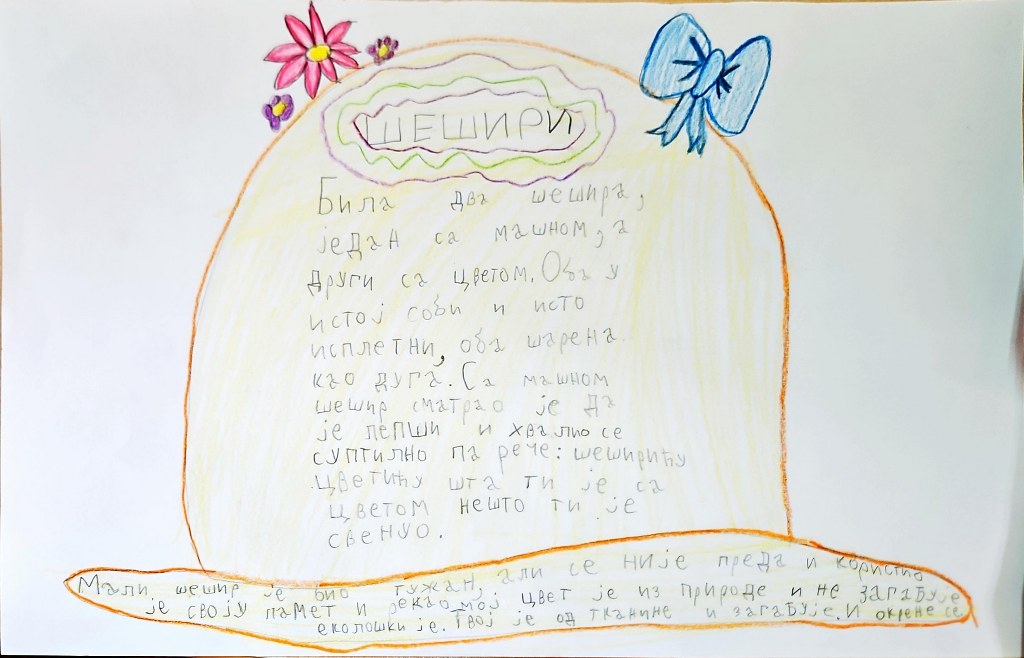 ШЕШИРИ
Била два шешира,
један са машном, а
други са цветом. Оба у
истој соби и исто
исплетни, оба шарена
као дуга. Са машном
шешир сматрао је да
је лепши и хвалио се
суптилно па рече: шеширићу
цветићу шта ти је са
цветом нешто ти је
свенуо.
Мали шешир је био тужан, али се није преда и користио
је своју памет и рекао мој цвет је из природе и не загађује
еколошки је. Твој је од тканине и загађује. И окрене се